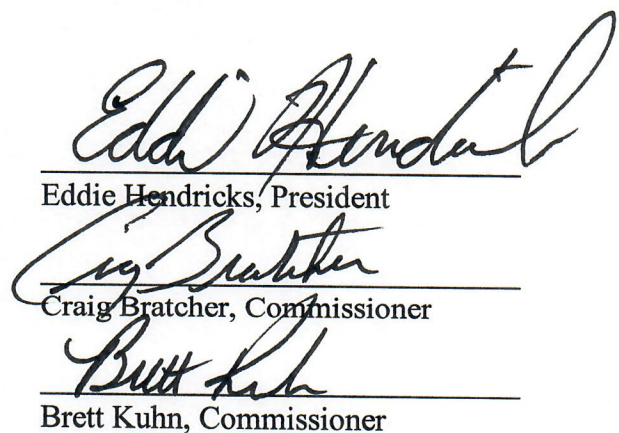 Eddie Hendricks
Eddie Hendricks, President
Craig Bratcher
Craig Bratcher, Commissioner
Brett Kuhn
Brett Kuhn, Commissioner